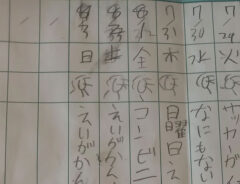 7/29 火 サッカーが
7/30 水 なにもない
7/31 木 日曜日え
金 コンビニ
えいがかん
8/3 日 えいがかん
/
/